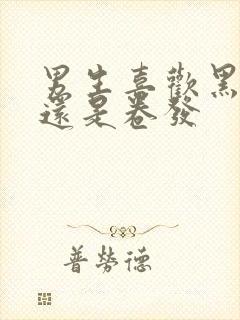 男生喜歡黑
還是卷發
普勞德